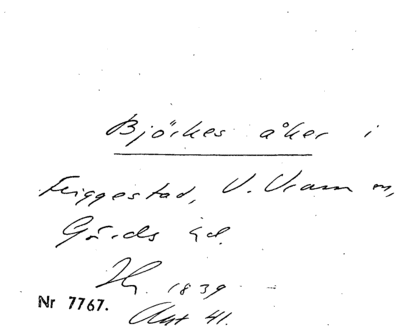 Björkes åker i
Friggestad, V. Vram sn,
Gärds hd.
Hy. 1839
Nr 7767.
Akt 41.